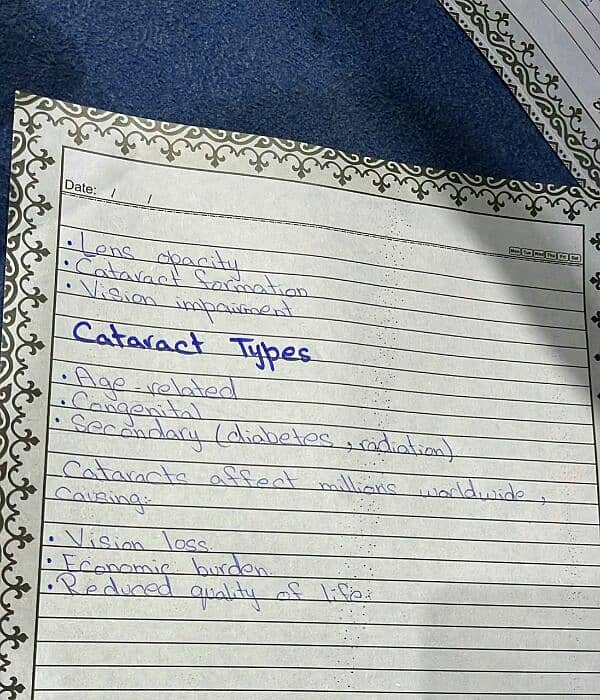 Date: / /
Mon Tue Wed Thu Fri Sat
• Lens opacity
• Cataract formation
• Vision impairment
Cataract Types
• Age-related
• Congenital
• Secondary (diabetes, radiation)
Cataracts affect millions worldwide,
causing:
• Vision loss
• Economic burden
• Reduced quality of life.